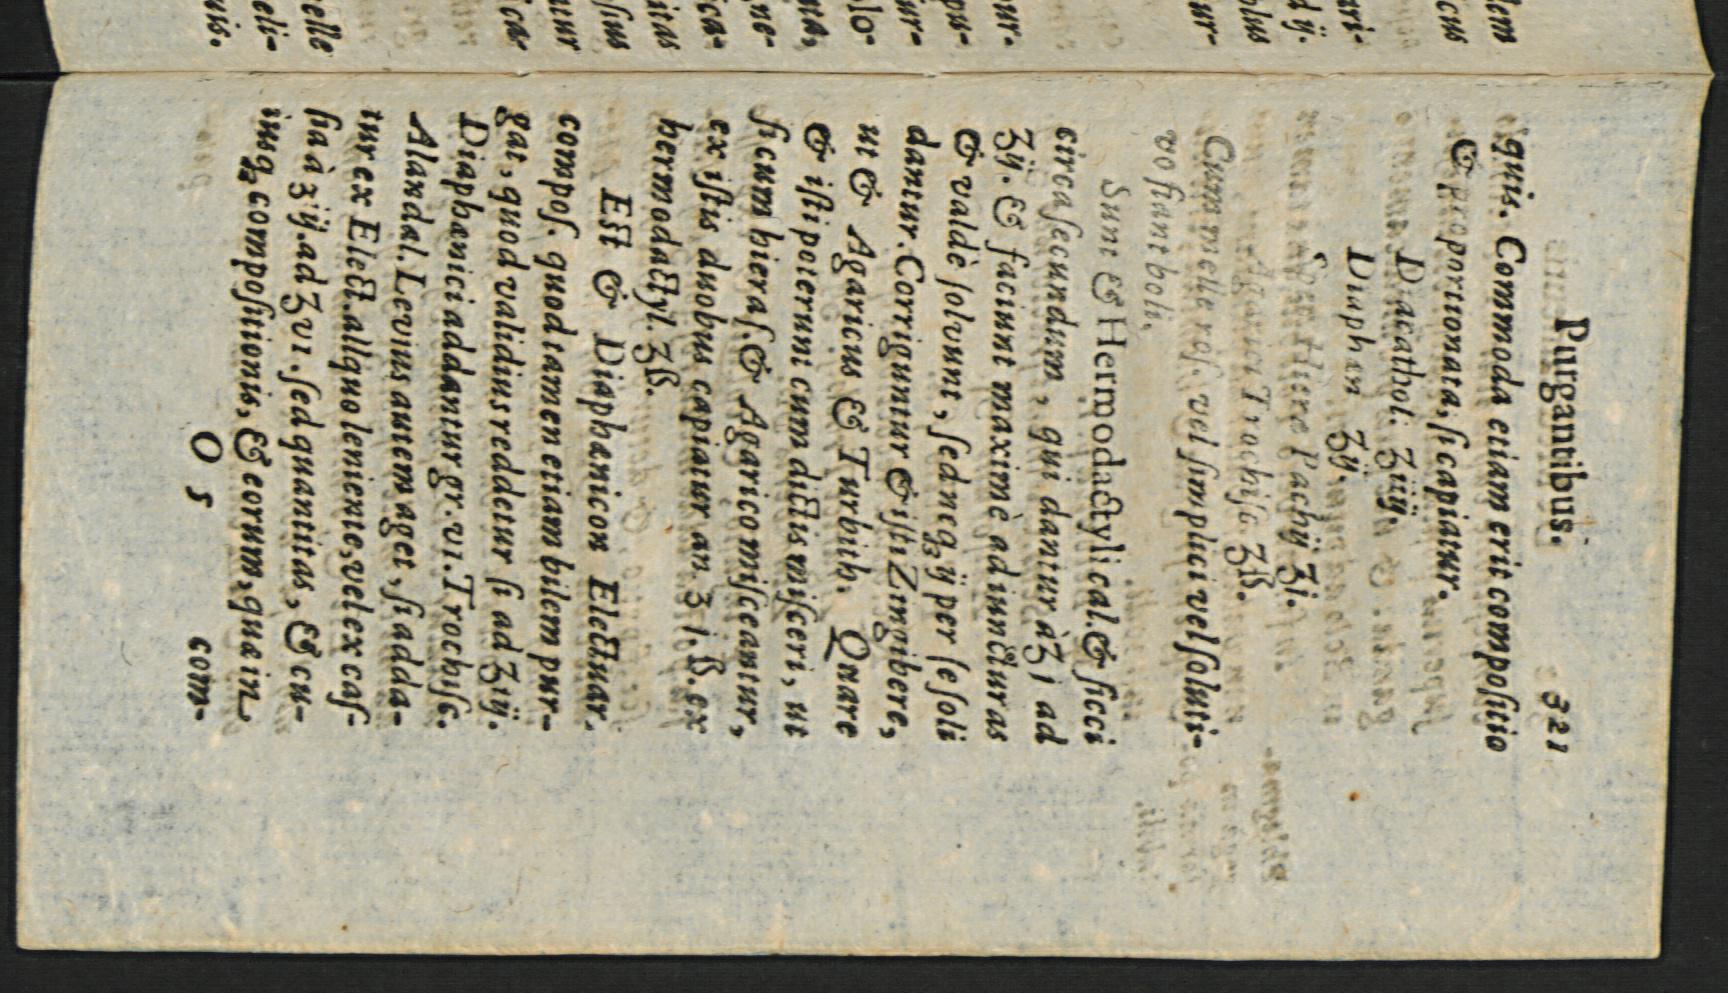 Purgantibus. 321
quis. Commoda etiam erit compoſitio
& proportionata, ſi capiatur.
Diacathol. ʒiiij.
Diaphœn ʒij.
Hieræ Pachij ʒi.
Agarici Trochiſc ʒß.
Cum melle roſ. vel ſimplici vel ſoluti-
vo fiant boli.
Sunt & Hermodactyli cal. & ſicci
circa ſecundum, qui dantur à ʒj ad
ʒij. & faciunt maximè ad iuncturas
& valdè ſolvunt, ſed neq; ij per ſe ſoli
dantur. Corriguntur & iſti Zingibere,
ut & Agaricus & Turbith. Quare
& iſti poterunt cum dictis miſceri, ut
ſi cum hieraſ. & Agarico miſceantur,
ex iſtis duobus capiatur an. ʒ i. ß. ex
hermodactyl. ʒß.
Eſt & Diaphœnicon Electuar.
compoſ. quod tamen etiam bilem pur-
gat, quod validius reddetur ſi ad ʒiij.
Diaphœnici addantur gr. vi. Trochiſc.
Alandal. Levius autem aget, ſi adda-
tur ex Elect. aliquo leniente, vel ex caſ-
ſia à ʒiij. ad ʒvi. ſed quantitas, & cu-
iusq; compoſitionis, & eorum, quæ in
O 5 com-
uis.
eli-
elle
ica-
ntur
ſſius
itas
ica-
gne-
na,
olo-
ur-
pu-
our-
ur-
olus
d ij.
ari-
icus